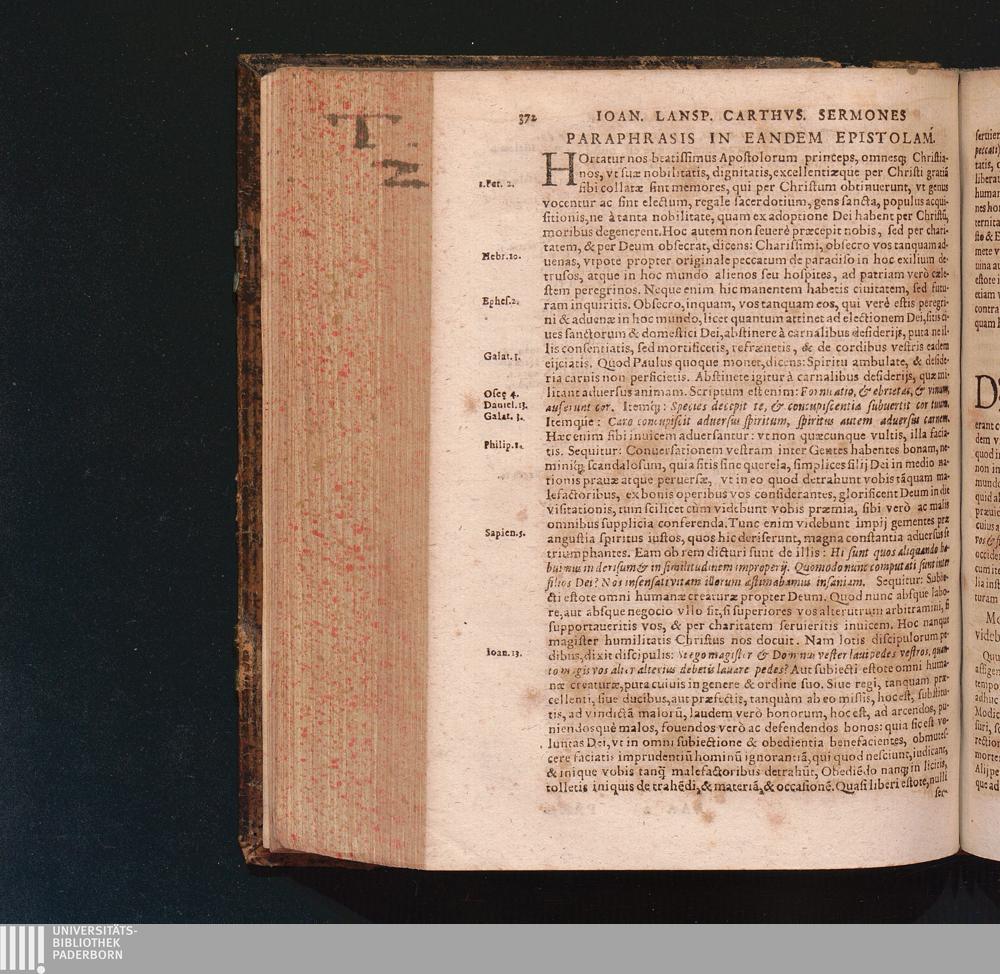 372 IOAN. LANSP. CARTHVS. SERMONES
PARAPHRASIS IN EANDEM EPISTOLAM.
HOrtatur nos beatissimus Apostolorum princeps, omnesq; Christia-
nos, vt suæ nobilitatis, dignitatis, excellentiæque per Christi gratiã
1.Pet. 2.
sibi collatæ sint memores, qui per Christum obtinuerunt, vt genus
vocentur ac sint electum, regale sacerdotium, gens sancta, populus acqui-
sitionis, ne à tanta nobilitate, quam ex adoptione Dei habent per Christũ,
moribus degenerent. Hoc autem non seuerè præcepit nobis, sed per chari-
tatem, & per Deum obsecrat, dicens: Charissimi, obsecro vos tanquam ad-
Hebr.10.
uenas, vtpote propter originale peccatum de paradiso in hoc exilium de-
trusos, atque in hoc mundo alienos seu hospites, ad patriam verò cæle-
stem peregrinos. Neque enim hic manentem habetis ciuitatem, sed futu-
Ephes.2.
ram inquiritis. Obsecro, inquam, vos tanquam eos, qui verè estis peregri-
ni & aduenæ in hoc mundo, licet quantum attinet ad electionem Dei, sitis ci-
ues sanctorum & domestici Dei, abstinere à carnalibus desiderijs, puta ne il-
lis consentiatis, sed mortificetis, refrænetis, & de cordibus vestris eadem
Galat. 5.
eijciatis. Quod Paulus quoque monet, dicens: Spiritu ambulate, & deside-
ria carnis non perficietis. Abstinete igitur à carnalibus desiderijs, quæ mi-
Oseę 4.
litant aduersus animam. Scriptum est enim: Fornicatio, & ebrietas, & vinum,
Daniel.13.
auferunt cor. Itemq;: Species decepit te, & concupiscentia subuertit cor tuum.
Galat. 5.
Itemque: Caro concupiscit aduersus spiritum, spiritus autem aduersus carnem.
Hæc enim sibi inuicem aduersantur: vt non quæcunque vultis, illa facia-
Philip.2.
tis. Sequitur: Conuersationem vestram inter Gentes habentes bonam, ne-
miniq; scandalosum, quia sitis sine querela, simplices filij Dei in medio na-
tionis prauæ atque peruersæ, vt in eo quod detrahunt vobis tãquam ma-
lefactoribus, ex bonis operibus vos considerantes, glorificent Deum in die
visitationis, tum scilicet cùm videbunt vobis præmia, sibi verò ac malis
omnibus supplicia conferenda. Tunc enim videbunt impij gementes præ
Sapien.5.
angustia spiritus iustos, quos hic deriserunt, magna constantia aduersus se
triumphantes. Eam ob rem dicturi sunt de illis: Hi sunt quos aliquando ha-
buimus in derisum & in similitudinem improperij. Quomodo nunc computati sunt inter
filios Dei? Nos insensati vitam illorum æstimabamus insaniam. Sequitur: Subie-
cti estote omni humanæ creaturæ propter Deum. Quod nunc absque labo-
re, aut absque negocio vllo fit, si superiores vos alterutrum arbitramini, si
supportaueritis vos, & per charitatem seruieritis inuicem. Hoc nanque
magister humilitatis Christus nos docuit. Nam lotis discipulorum pe-
Ioan.13.
dibus, dixit discipulis: Si ego magister & Dominus vester laui pedes vestros, quan-
to magis vos alter alterius debetis lauare pedes? Aut subiecti estote omni huma-
næ creaturæ, puta cuiuis in genere & ordine suo. Siue regi, tanquam præ-
cellenti, siue ducibus, aut præfectis, tanquàm ab eo missis, hoc est, substitu-
tis, ad vindictã malorũ, laudem verò bonorum, hoc est, ad arcendos, pu-
niendosquè malos, fouendos verò ac defendendos bonos: quia sic est vo-
luntas Dei, vt in omni subiectione & obedientia benefacientes, obmutes-
cere faciatis imprudentiũ hominũ ignorantiã, qui quod nesciunt, iudicant,
& inique vobis tanq̃ malefactoribus detrahũt, Obediẽdo nanq; in licitis,
tolletis iniquis detrahẽdi, & materiã, & occasionẽ. Quasi liberi estote, nulli
ser-
T
N
UNIVERSITÄTS-
BIBLIOTHEK
PADERBORN